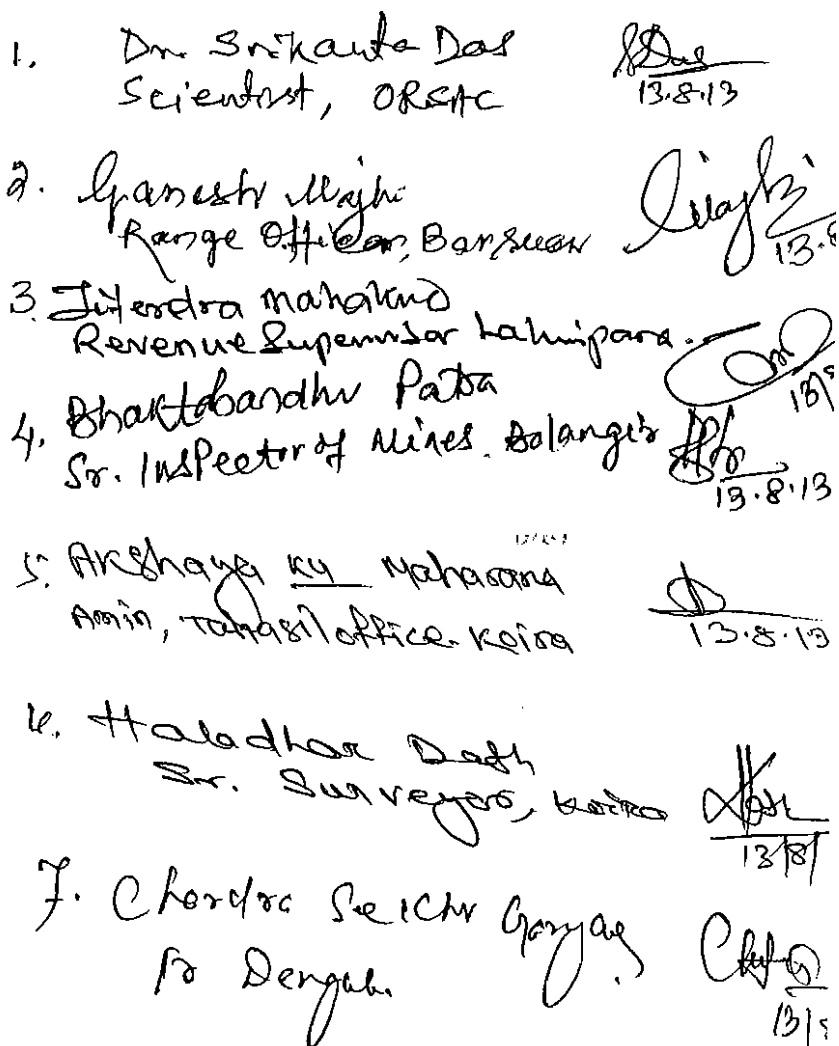 1. Dr. Srikanta Das
Scientist, ORSAC
13.8.13
2. Ganesh Majhi
Range Officer, Barsuan
13.8
3. Jitendra Mahakud
Revenue Supervisor Lahunipara.
13/8
4. Bhaktabandhu Patra
Sr. Inspector of Mines. Bolangir
13.8.13
5. Akshaya Ku Maharana
Amin, Tahasil office. Koira
13.8.13
6. Haladhar Dash
Sr. Surveyor, Koira
13/8/
7. Chandra Sekhar
13/